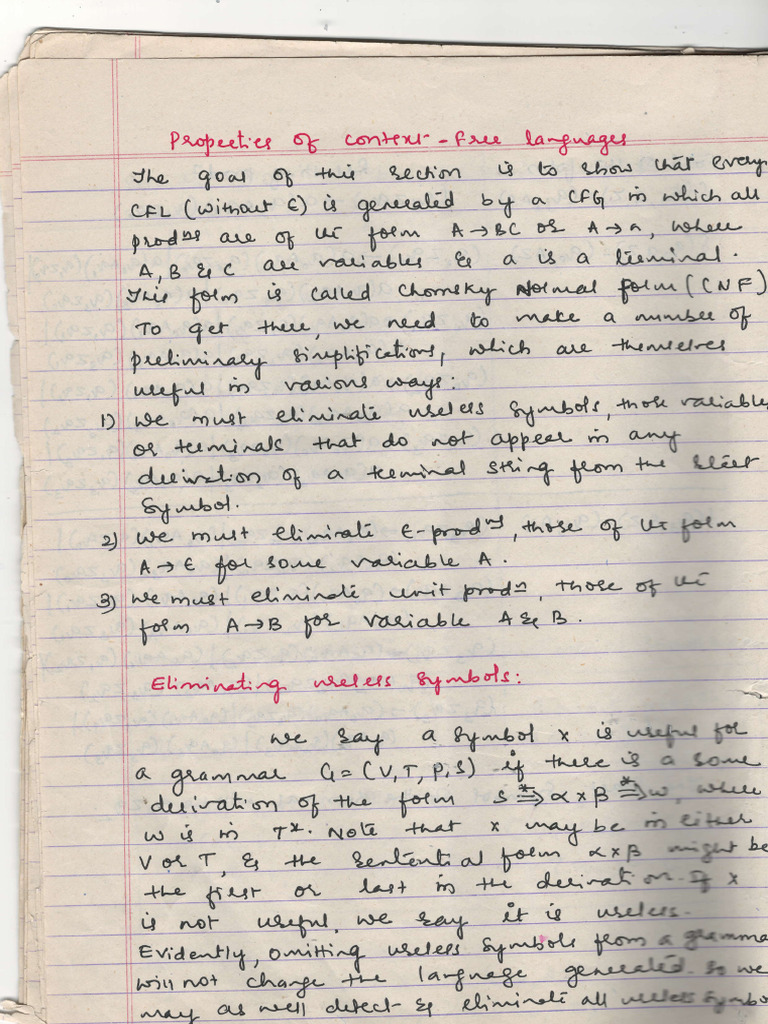 Properties of context-free languages
The goal of this section is to show that every
CFL (without ε) is generated by a CFG in which all
prodns are of the form A→BC or A→a, where
A, B & C are variables & a is a terminal.
This form is called Chomsky Normal form (CNF)
To get there, we need to make a number of
preliminary simplifications, which are themselves
useful in various ways:
1) We must eliminate useless symbols, those variables
or terminals that do not appear in any
derivation of a terminal string from the start
symbol.
2) We must eliminate ε-prodns, those of the form
A→ε for some variable A.
3) We must eliminate unit prodn, those of the
form A→B for variable A & B.
Eliminating useless symbols:
We say a symbol x is useful for
a grammar G=(V,T,P,S) if there is a some
derivation of the form S *⇒ αxβ *⇒ w, where
w is in T*. Note that x may be in either
V or T, & the sentential form αxβ might be
the first or last in the derivation. If x
is not useful, we say it is useless.
Evidently, omitting useless symbols from a gramma
will not change the language generated. so we
may as well detect & eliminate all useless symbo